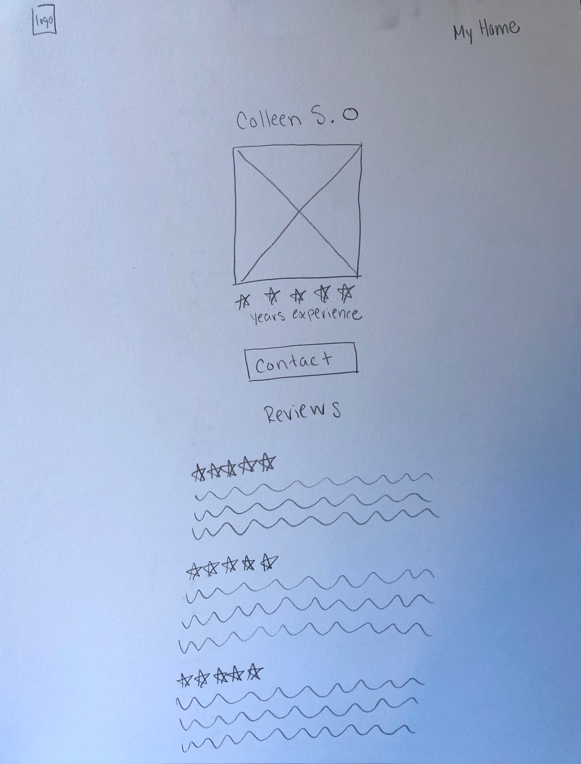 logo
My Home
Colleen S.
years experience
Contact
Reviews